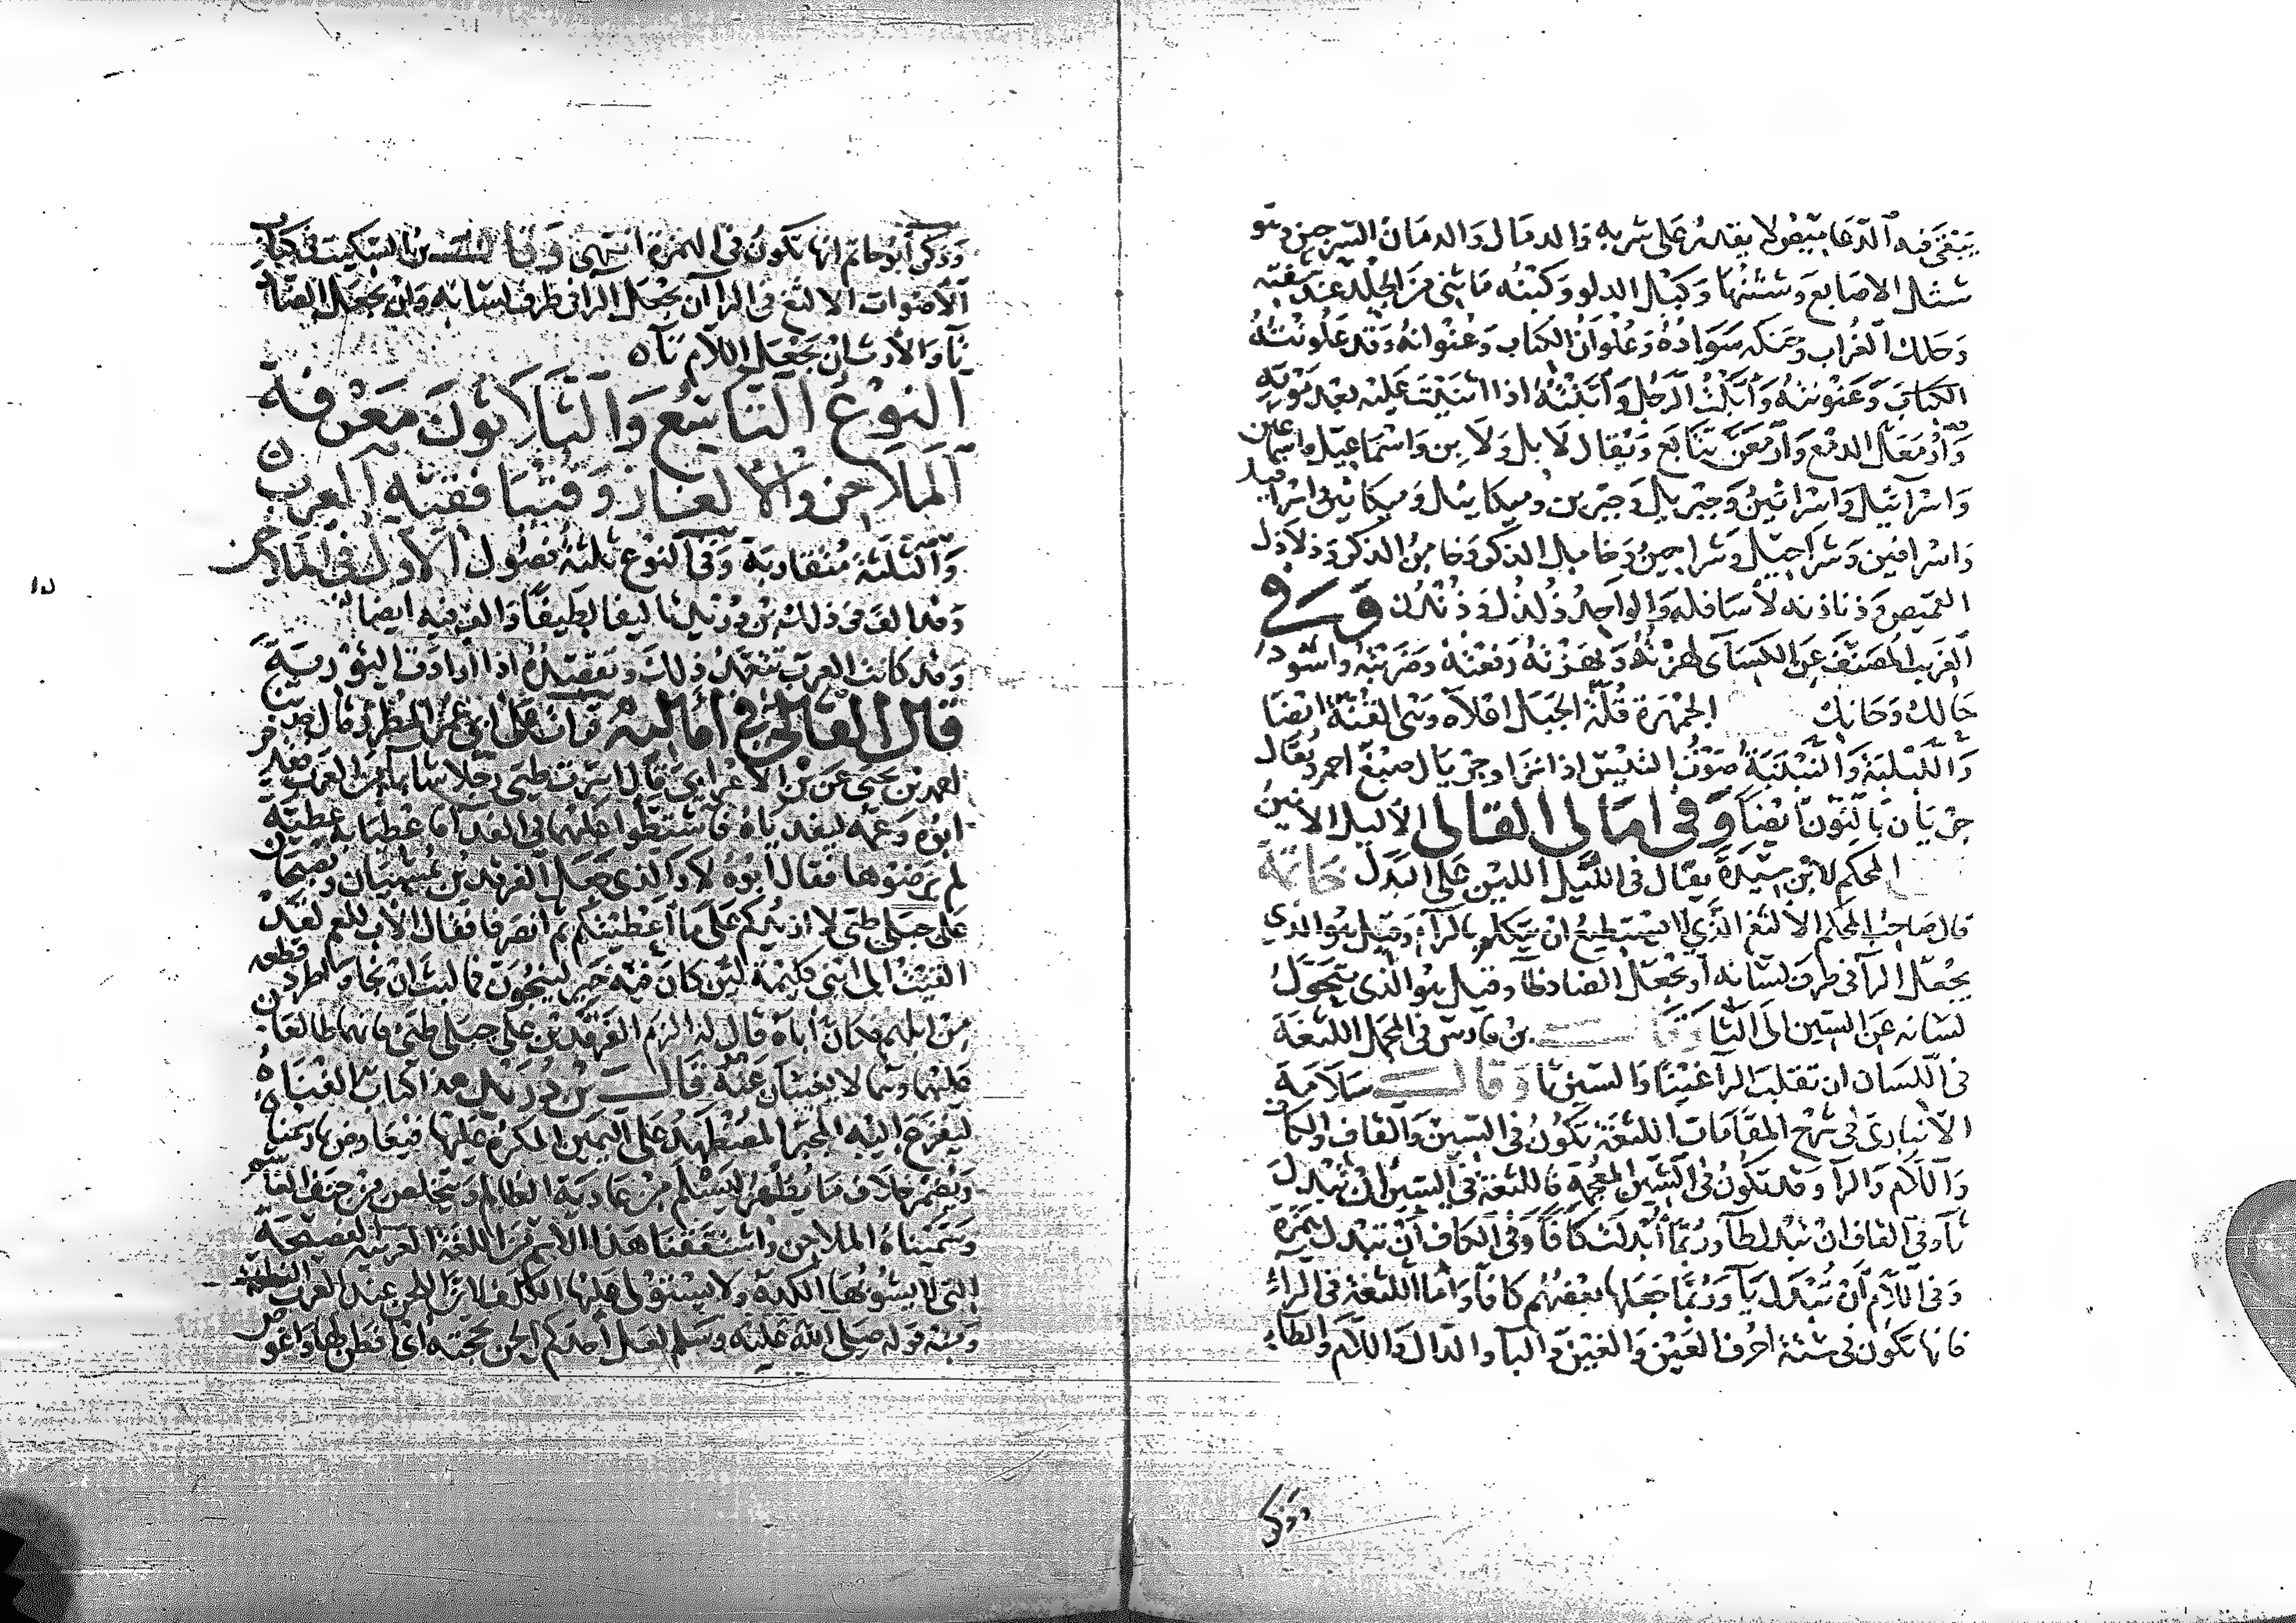 يبقى فيه الدعاميص لا يقدر على شربه والدمال والدمان السرجين وهو
شثل الاصابع وشثنها وكبل الدلو وكبنه ما ثنى من الجلد عند شفته
وحلك الغراب وحنكه سواده وعلوان الكتاب وعنوانه وقد علونت
الكتاب وعنونته وابلت الرجل وابنته اذا اثنيت عليه بعد موته
وارمعل الدمع وارمعن تتابع ويقال لابل ولابن واسماعيل واسماعين
واسرائيل واسرائين وجبريل وجبرين وميكائيل وميكائين واسرافيل
واسرافين وشراحيل وشراحين وخامل الذكر وخامن الذكر وذلاذل
القميص وذناذنه لاسافله والواحد ذلذل وذنذن وفي
الغريب المصنف عن الكسائي لهزته ونهزته دفعته وضربته واسود
حالك وحانك الجمهرة قلة الجبل اعلاه وهي القنة ايضا
والبلبلة والنبنبة صوت التيس اذا نزا وجريال صبغ احمر ويقال
جريان بالنون ايضا وفي امالي القالي الاليل الانين
المحكم لابن سيدة يقال في الليل الليْن على البدل خاتمة
قال صاحب المحكم الالثغ الذي لا يستطيع ان يتكلم بالراء وقيل هو الذي
يجعل الرا في طرف لسانه او يجعل الصاد فا وقيل هو الذي يتحول
لسانه عن السين الى الثا وقال بن فارس في المجمل اللثغة
في اللسان ان تقلب الرا غينا والسين ثا وقال سلامة
الانباري في شرح المقامات اللثغة تكون في السين والقاف والكاف
واللام والرا وقد تكون في الشين المعجمة فاللثغة في السين ان تبدل
ثا وفي القاف ان تبدل طا وربما ابدلت كافا وفي الكاف ان تبدل همزة
وفي اللام ان تبدل يا وربما جعلها بعضهم كافا واما اللثغة في الراء
فانها تكون في ستة احرف العين والغين واليا والدال واللام والظاء
وذكر
وذكر ابو حاتم انها تكون في الهمزة انتهى وقال بن السكيت في كتاب
الاصوات الالثغ في الرا ان يجعل الرا في طرف لسانه وان يجعل الصاد
ثا والارت ان يجعل اللام تاه
النوع التاسع والثلاثون معرفة
الملاحن والالغاز وفتيا فقيه العرب
والثلثة متقاربة وفي النوع ثلثة فصول الاول في الملاحن
وقد الف في ذلك بن دريد تاليفا لطيفا والف فيه ايضا
وقد كانت العرب تتعمد ذلك وتقصده اذا ارادت التورية
قال القالي في اماليه قرات على ابي عمر المطرز قال حدثنا
احمد بن يحيى عن بن الاعرابي قال اسرت طيي رجلا شابا من العرب فقدم
ابوه وعمه ليفدياه فاشتطوا عليهما في الفدا فاعطيا به عطية
لم يرضوها فقال ابوه لا والذي جعل الفرقدين يمسيان ويصبحان
على جبلي طيي لا ازيدكم على ما اعطيتكم ثم انصرفا فقال الاب للعم لقد
القيت الى ابني كليمة لئن كان فيه خير لينجون فما لبث ان نجا واطرد قطعة
من ابلهم فكان اباه قال له الزم الفرقدين على جبلي طيي فانهما طالعان
عليهما وهما لا يغيبان عنه قال بن دريد هذا كتاب الفناه
ليفزع اليه المجبر المضطهد على اليمين المكره عليها فيعارض بما رسمناه
ويضمر خلاف ما يظهر ليسلم من عادية الظالم ويتخلص من حنف الغاشم
وسميناه الملاحن واشتققنا هذا الاسم من اللغة العربية الفصيحة
التي لا يشوبها الكدر ولا يستولي عليها التكلف لان اللحن عند العرب الفطنة
ومنه قوله صلى الله عليه وسلم لعل احدكم الحن بحجته اي افطن لها واغوص